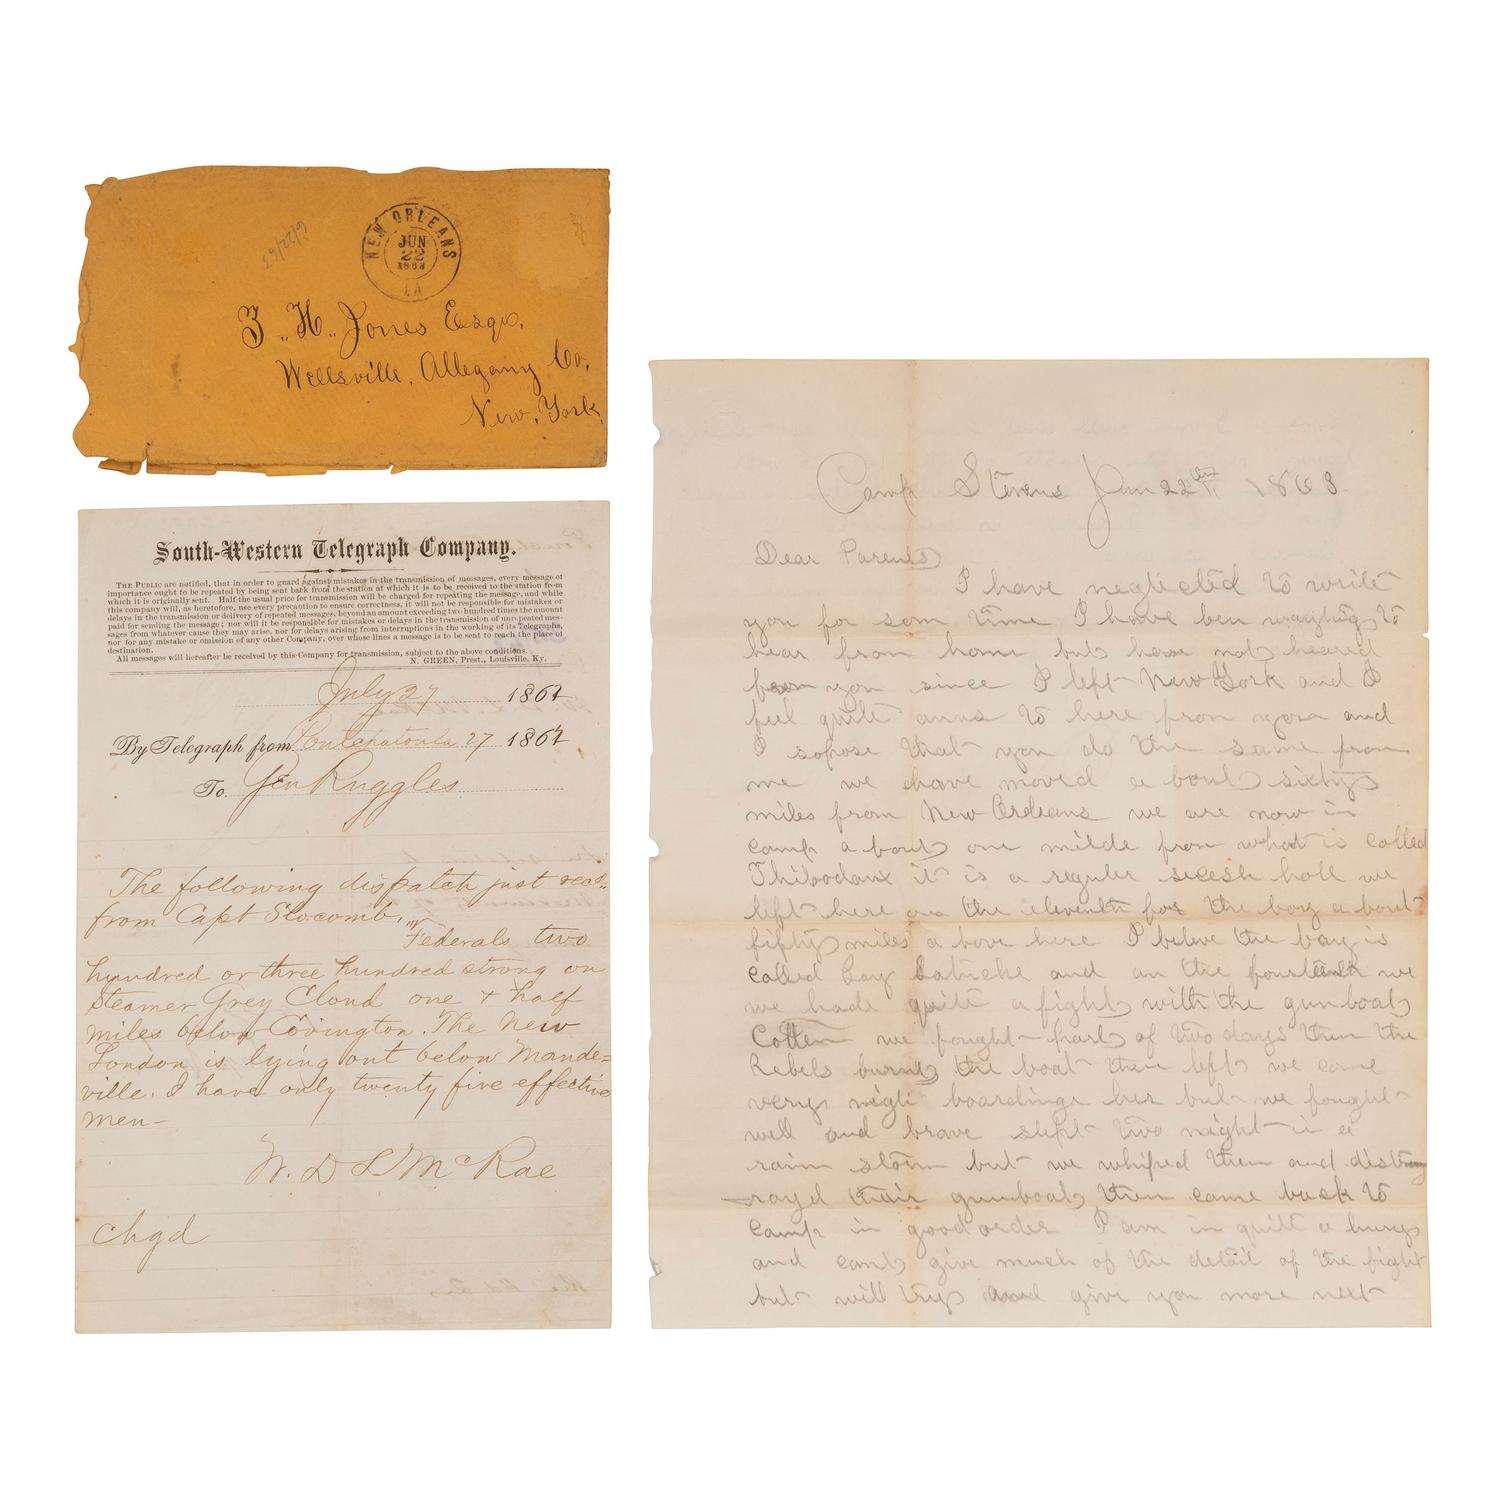 NEW ORLEANS
JUN
22
1863
LA
6/22/63
Z. H. Jones Esqr.
Wellsville, Allegany Co,
New, York
South-Western Telegraph Company.
THE PUBLIC are notified, that in order to guard against mistakes in the transmission of messages, every message of
importance ought to be repeated by being sent back from the station at which it is to be received to the station from
which it is originally sent. Half the usual price for transmission will be charged for repeating the message, and while
this company will, as heretofore, use every precaution to ensure correctness, it will not be responsible for mistakes or
delays in the transmission or delivery of repeated messages, beyond an amount exceeding two hundred times the amount
paid for sending the message; nor will it be responsible for mistakes or delays in the transmission of unrepeated mes-
sages from whatever cause they may arise, nor for delays arising from interruptions in the working of its Telegraphs,
nor for any mistake or omission of any other Company, over whose lines a message is to be sent to reach the place of
destination.
All messages will hereafter be received by this Company for transmission, subject to the above conditions.
N. GREEN, Prest., Louisville, Ky.
July 27 1862
By Telegraph from Ponchatoula 27 1862
To Gen Ruggles
The following dispatch just recd
from Capt Slocomb,
"Federals two
hundred or three hundred strong on
Steamer Grey Cloud one + half
miles below Covington. The New
London is lying out below Mande=
ville. I have only twenty five effective
men-
W. D L McRae
chgd
Camp Stevens Jan 22th 1863
Dear Parents
I have neglected to write
you for som time I have ben wayhting to
hear from home but have not heard
from you since I left New York and I
feel quite anxs to here from you and
I sopose that you do the same from
me we have moved a bout sixty
miles from New Orleans we are now in
camp a bout one milde from what is called
Thibodaux it is a reguler secesh hole we
left here on the eleventh for the bay a bout
fifty miles a bove here I beleve the bay is
called bay Lafuche and on the fourteenth we
we hade quite a fight with the gunboat
Cotten we fought part of two days then the
Rebels burnt the boat then left we came
very nigh boardinge her but we fought
well and brave slept two night in a
rain storm but we whiped them and dist
royed thair gunboat then came back to
camp in good order I am in quite a hurry
and cant give much of the detail of the fight
but will try and give you more next